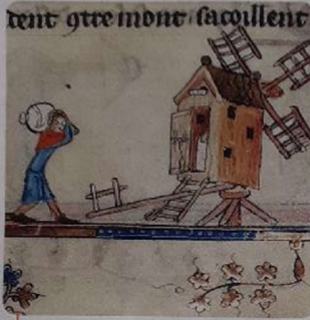 tent ꝯtre mont sacoillent